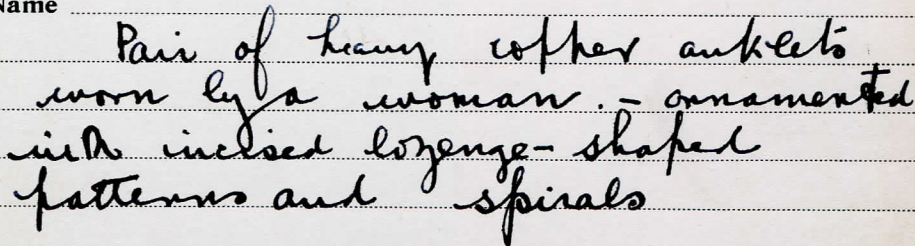 Name
Pair of heavy copper anklets
worn by a woman. - ornamented
with incised lozenge-shaped
patterns and spirals